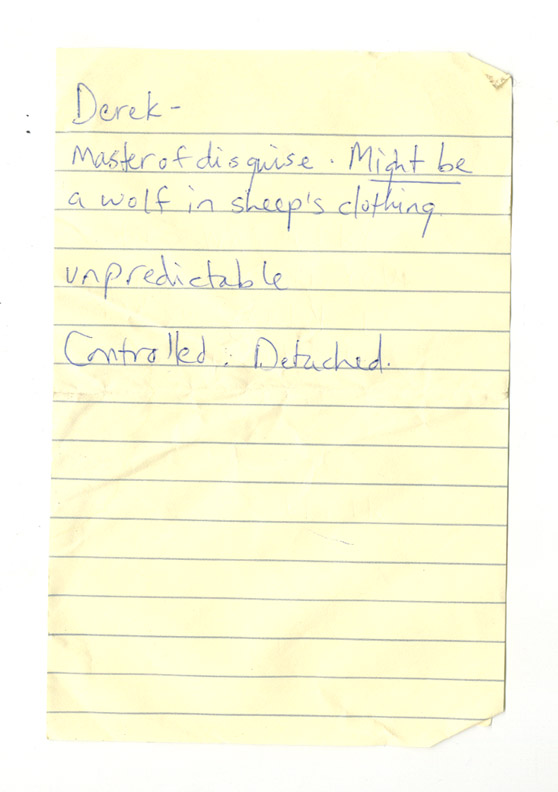 Derek-
Master of disguise. Might be
a wolf in sheep's clothing.
unpredictable
Controlled. Detached.